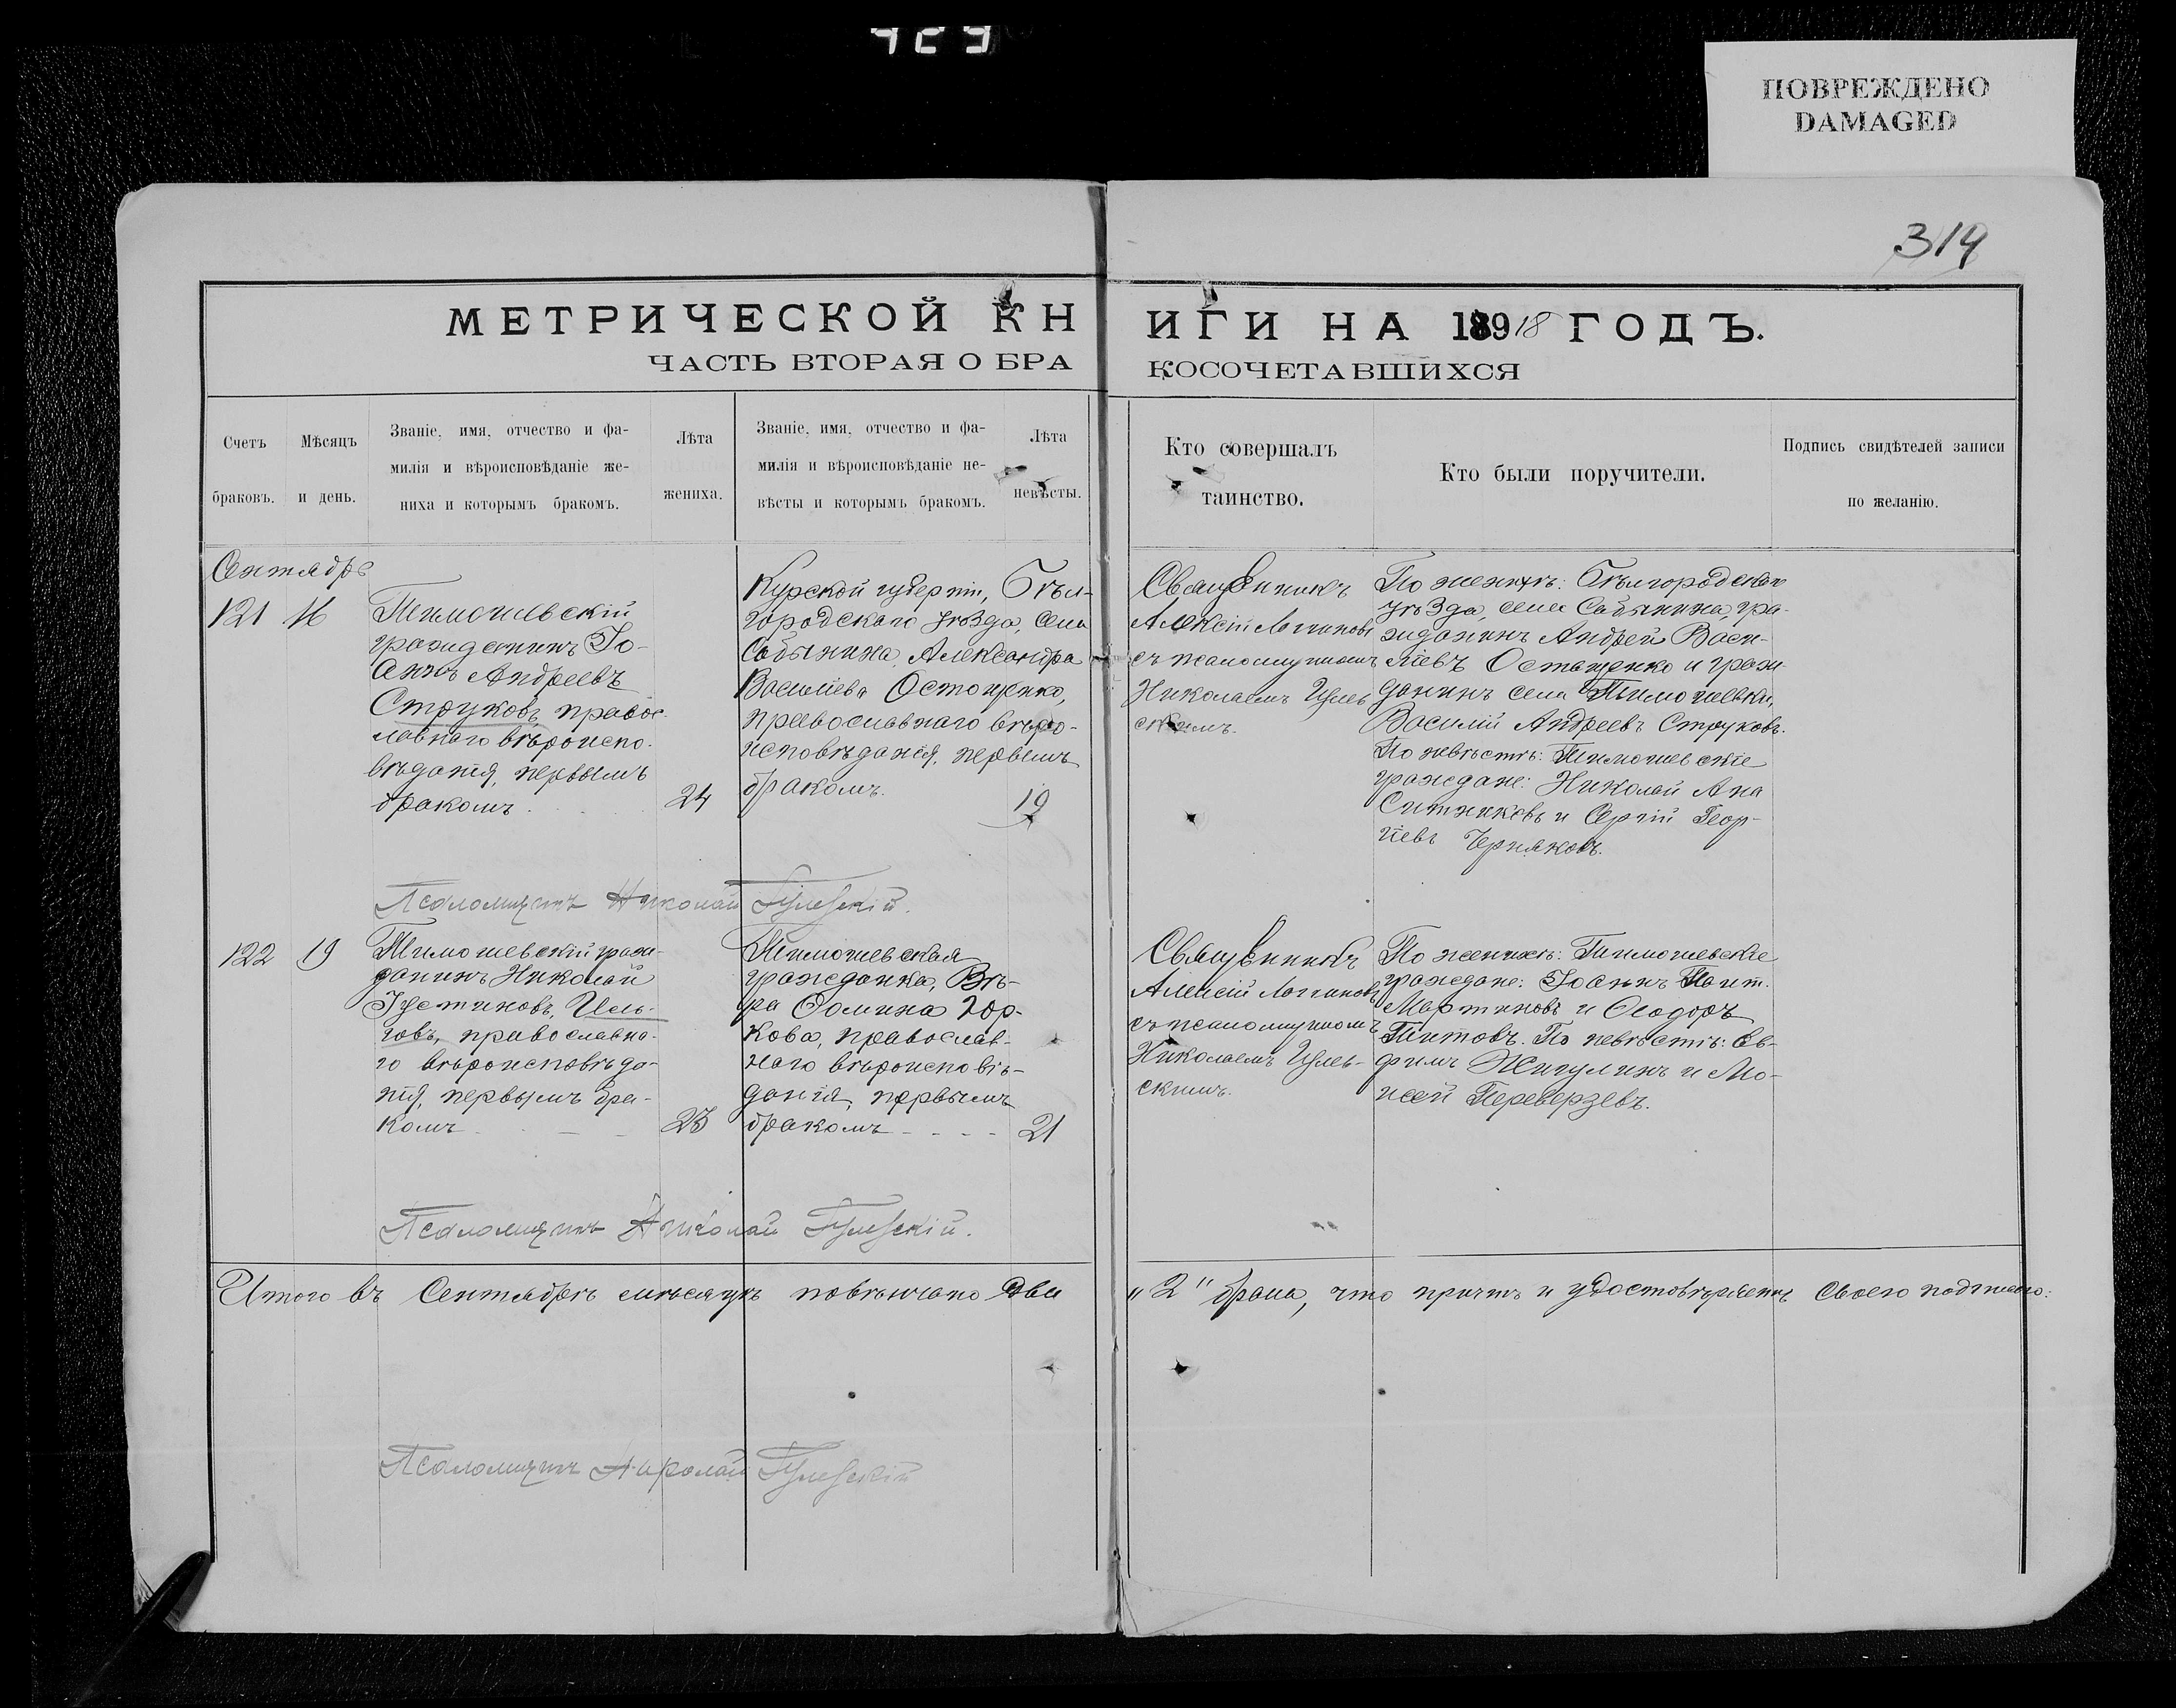 ПОВРЕЖДЕНО
DAMAGED
314
МЕТРИЧЕСКОЙ КНИГИ НА 1918 ГОДЪ.
ЧАСТЬ ВТОРАЯ О БРАКОСОЧЕТАВШИХСЯ
Счетъ
браковъ.
Мѣсяцъ
и день.
Званіе, имя, отчество и фа-
милія и вѣроисповѣданіе же-
ниха и которымъ бракомъ.
Лѣта
жениха.
Званіе, имя, отчество и фа-
милія и вѣроисповѣданіе не-
вѣсты и которымъ бракомъ.
Лѣта
невѣсты.
Кто совершалъ
таинство.
Кто были поручители.
Подпись свидѣтелей записи
по желанію.
Сентябрь
121
16
Тимошевскій
гражданинъ Іо-
аннъ Андреевъ
Струковъ, правос-
лавнаго вѣроиспо-
вѣданія, первымъ
бракомъ
24
Курской губерніи, Бѣл-
городскаго уѣзда, села
Сабынина, Александра
Васильева Остащенко,
православнаго вѣро-
исповѣданія, первымъ
бракомъ.
19
Священникъ
Алексій Логиновъ
съ псаломщикомъ
Николаемъ
По женихѣ: Бѣлгородскаго
уѣзда, села Сабынина, гра-
жданинъ Андрей Васи-
ліевъ Остащенко и граж-
данинъ села Тимошевки,
Василій Андреевъ Струковъ.
По невѣстѣ: Тимошевскіе
граждане: Николай
Ситниковъ и Сергій Геор-
гіевъ Черняковъ.
Псаломщикъ Николай
122
19
Тимошевскій граж-
данинъ Николай
Іустиновъ,
православна-
го вѣроисповѣда-
нія, первымъ бра-
комъ
23
Тимошевская
гражданка, Вѣ-
ра Ѳомина Гор-
кова, православ-
наго вѣроисповѣ-
данія, первымъ
бракомъ
21
Священникъ
Алексій Логиновъ
съ псаломщикомъ
Николаемъ
По женихѣ: Тимошевскіе
граждане: Іоаннъ
Мартиновъ и Ѳеодоръ
Титовъ. По невѣстѣ: Ев-
фимъ Жигулинъ и Мо-
исей Переверзевъ.
Псаломщикъ Николай
Итого въ Сентябрѣ мѣсяцѣ повѣнчано два „2" брака, что причтъ и удостовѣряетъ своею подписью:
Псаломщикъ Николай